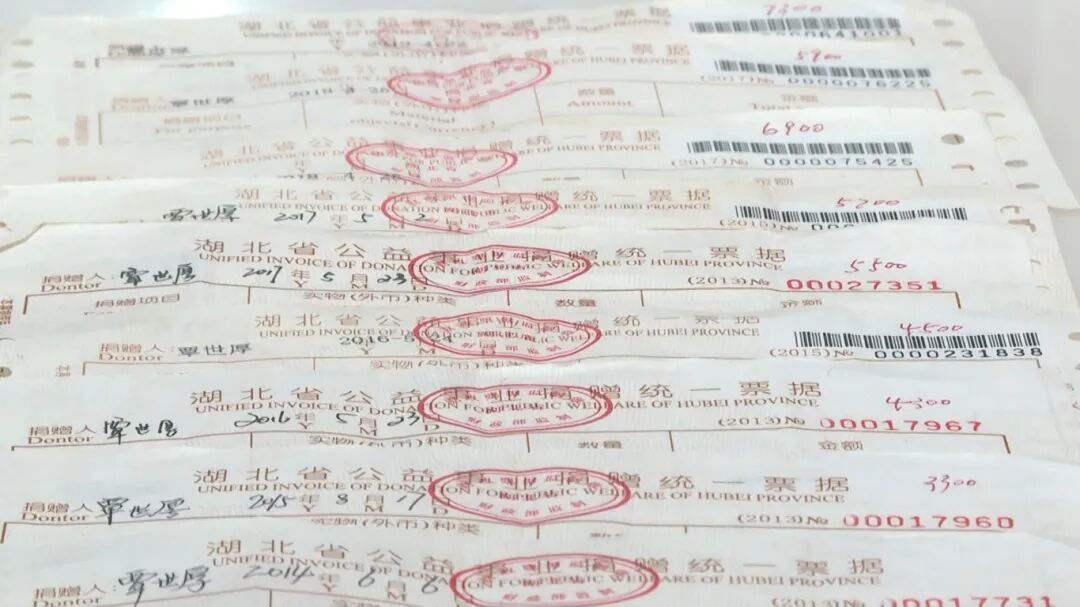 7300
湖北省公益事业捐赠统一票据
UNIFIED INVOICE OF DONATION FOR PUBLIC WELFARE OF HUBEI PROVINCE
5900
湖北省公益事业捐赠统一票据
OF HUBEI PROVINCE
(2017)№ 0000076225
覃世厚 2018
数量 金额
Amount Total
捐赠项目
For purpose
Material
6900
湖北省公益事业捐赠统一票据
UNIFIED INVOICE OF DONATION FOR PUBLIC WELFARE OF HUBEI PROVINCE
(2017)№ 0000075425
金额
5300
湖北省公益事业捐赠统一票据
UNIFIED INVOICE OF DONATION FOR PUBLIC WELFARE OF HUBEI PROVINCE
覃世厚 2017 年 5
湖北省公益事业捐赠统一票据 5500
UNIFIED INVOICE OF DONATION FOR PUBLIC WELFARE OF HUBEI PROVINCE
捐赠人: 覃世厚 2017 年 5 月 23 №00027351
Dontor Y M D
捐赠项目 实物(外币)种类 数量 金额
湖北省公益事业捐赠统一票据 4500
UNIFIED INVOICE OF DONATION FOR PUBLIC WELFARE OF HUBEI PROVINCE
捐赠人: 覃世厚 (2015)№ 0000231838
Dontor Y M D
实物(外币)种类 数量 金额
湖北省公益事业捐赠统一票据 4300
UNIFIED INVOICE OF DONATION FOR PUBLIC WELFARE OF HUBEI PROVINCE
捐赠人: 覃世厚 2016 年 5 月 23 (2013)№ 00017967
Dontor Y M D
实物(外币)种类 数量 金额
湖北省公益事业捐赠统一票据 3300
UNIFIED INVOICE OF DONATION FOR PUBLIC WELFARE OF HUBEI PROVINCE
捐赠人: 覃世厚 2015 年 8 月 (2013)№ 00017960
Dontor Y M D
实物(外币)种类
湖北省公益事业捐赠统一票据
UNIFIED INVOICE OF DONATION FOR PUBLIC WELFARE OF HUBEI PROVINCE
捐赠人: 覃世厚 2014 年 6 月 6 (2013)№ 00017731
Dontor Y M D